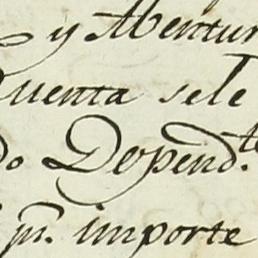 y Abentur
Quenta sele
do Dependte
jn. importe